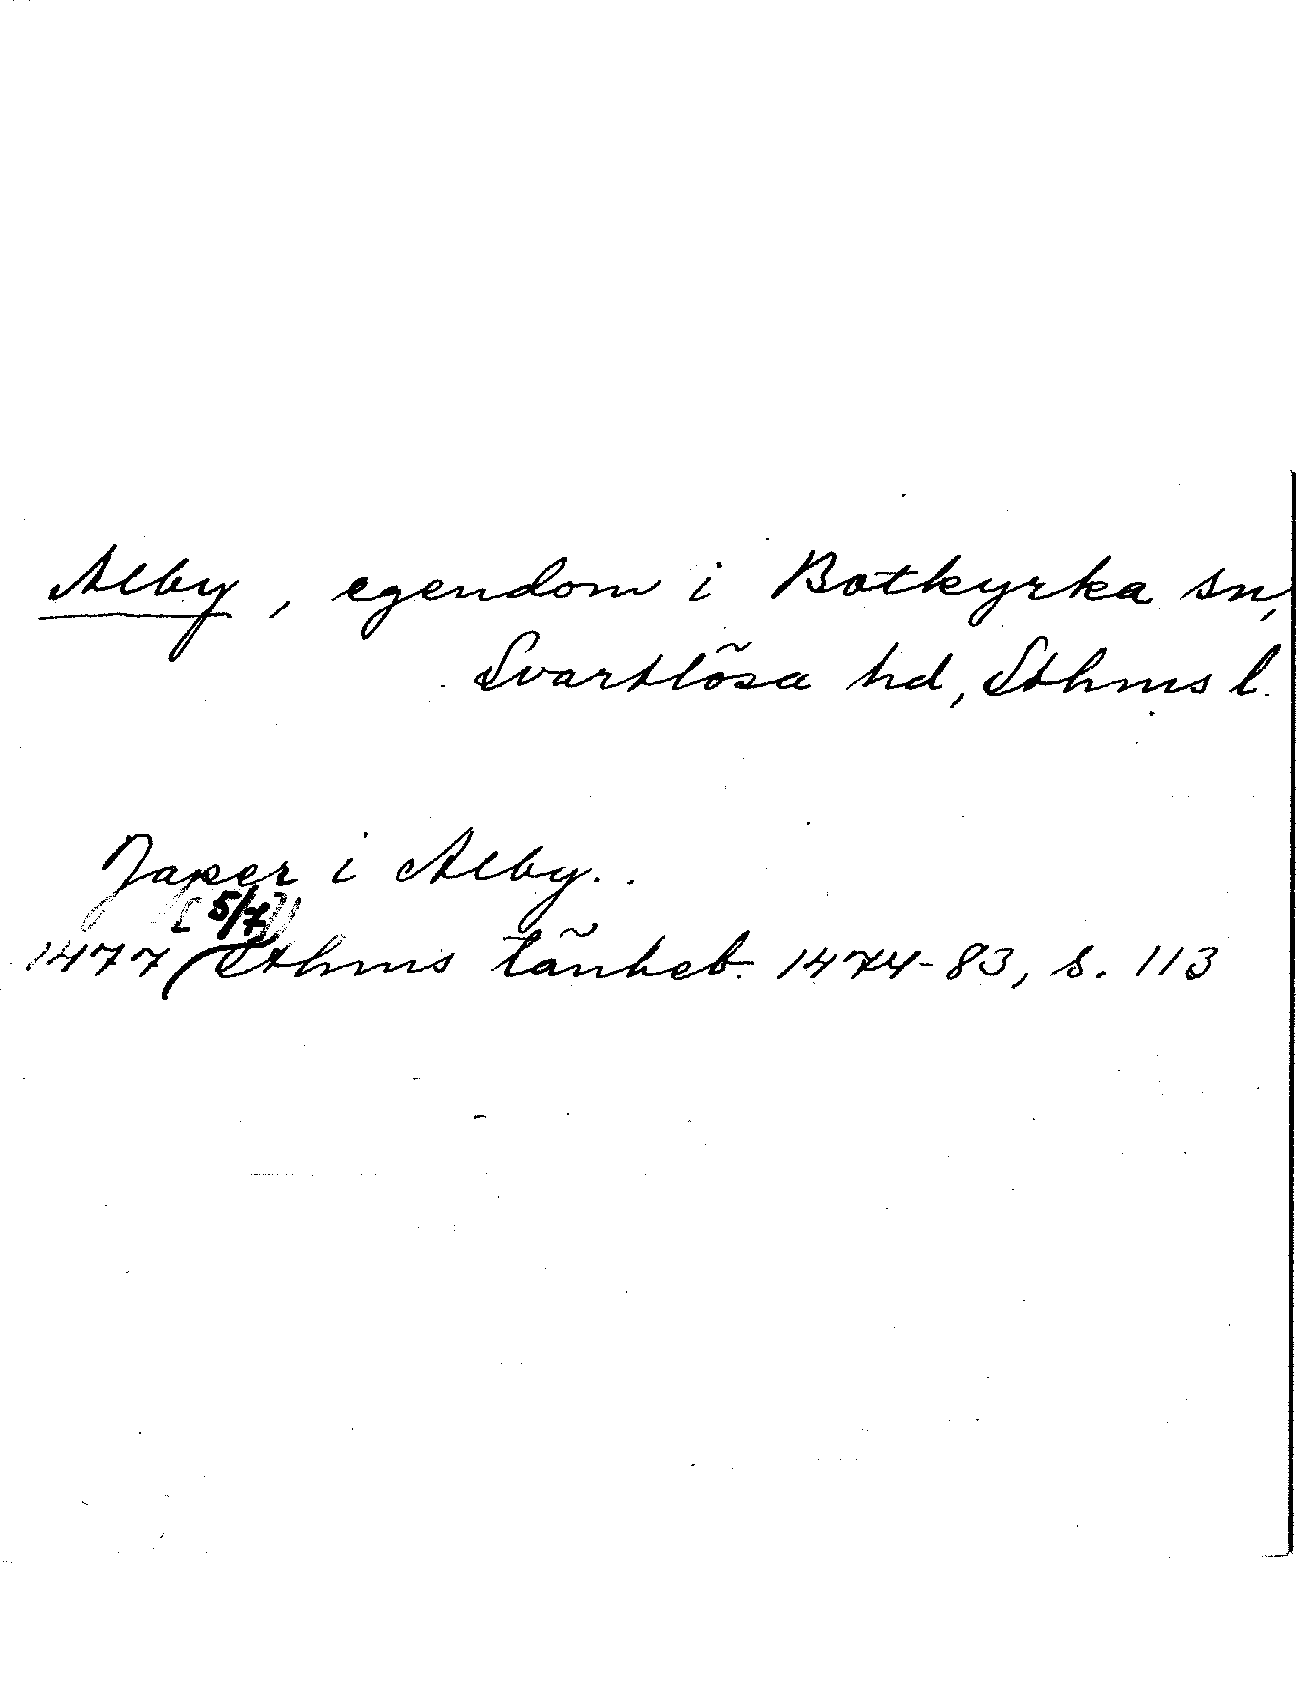 Alby, egendom i Botkyrka sn,
Svartlösa hd, Sthms l.
Japer i Alby. .
[5/7]
1477 Sthms tänkeb. 1474-83, s. 113